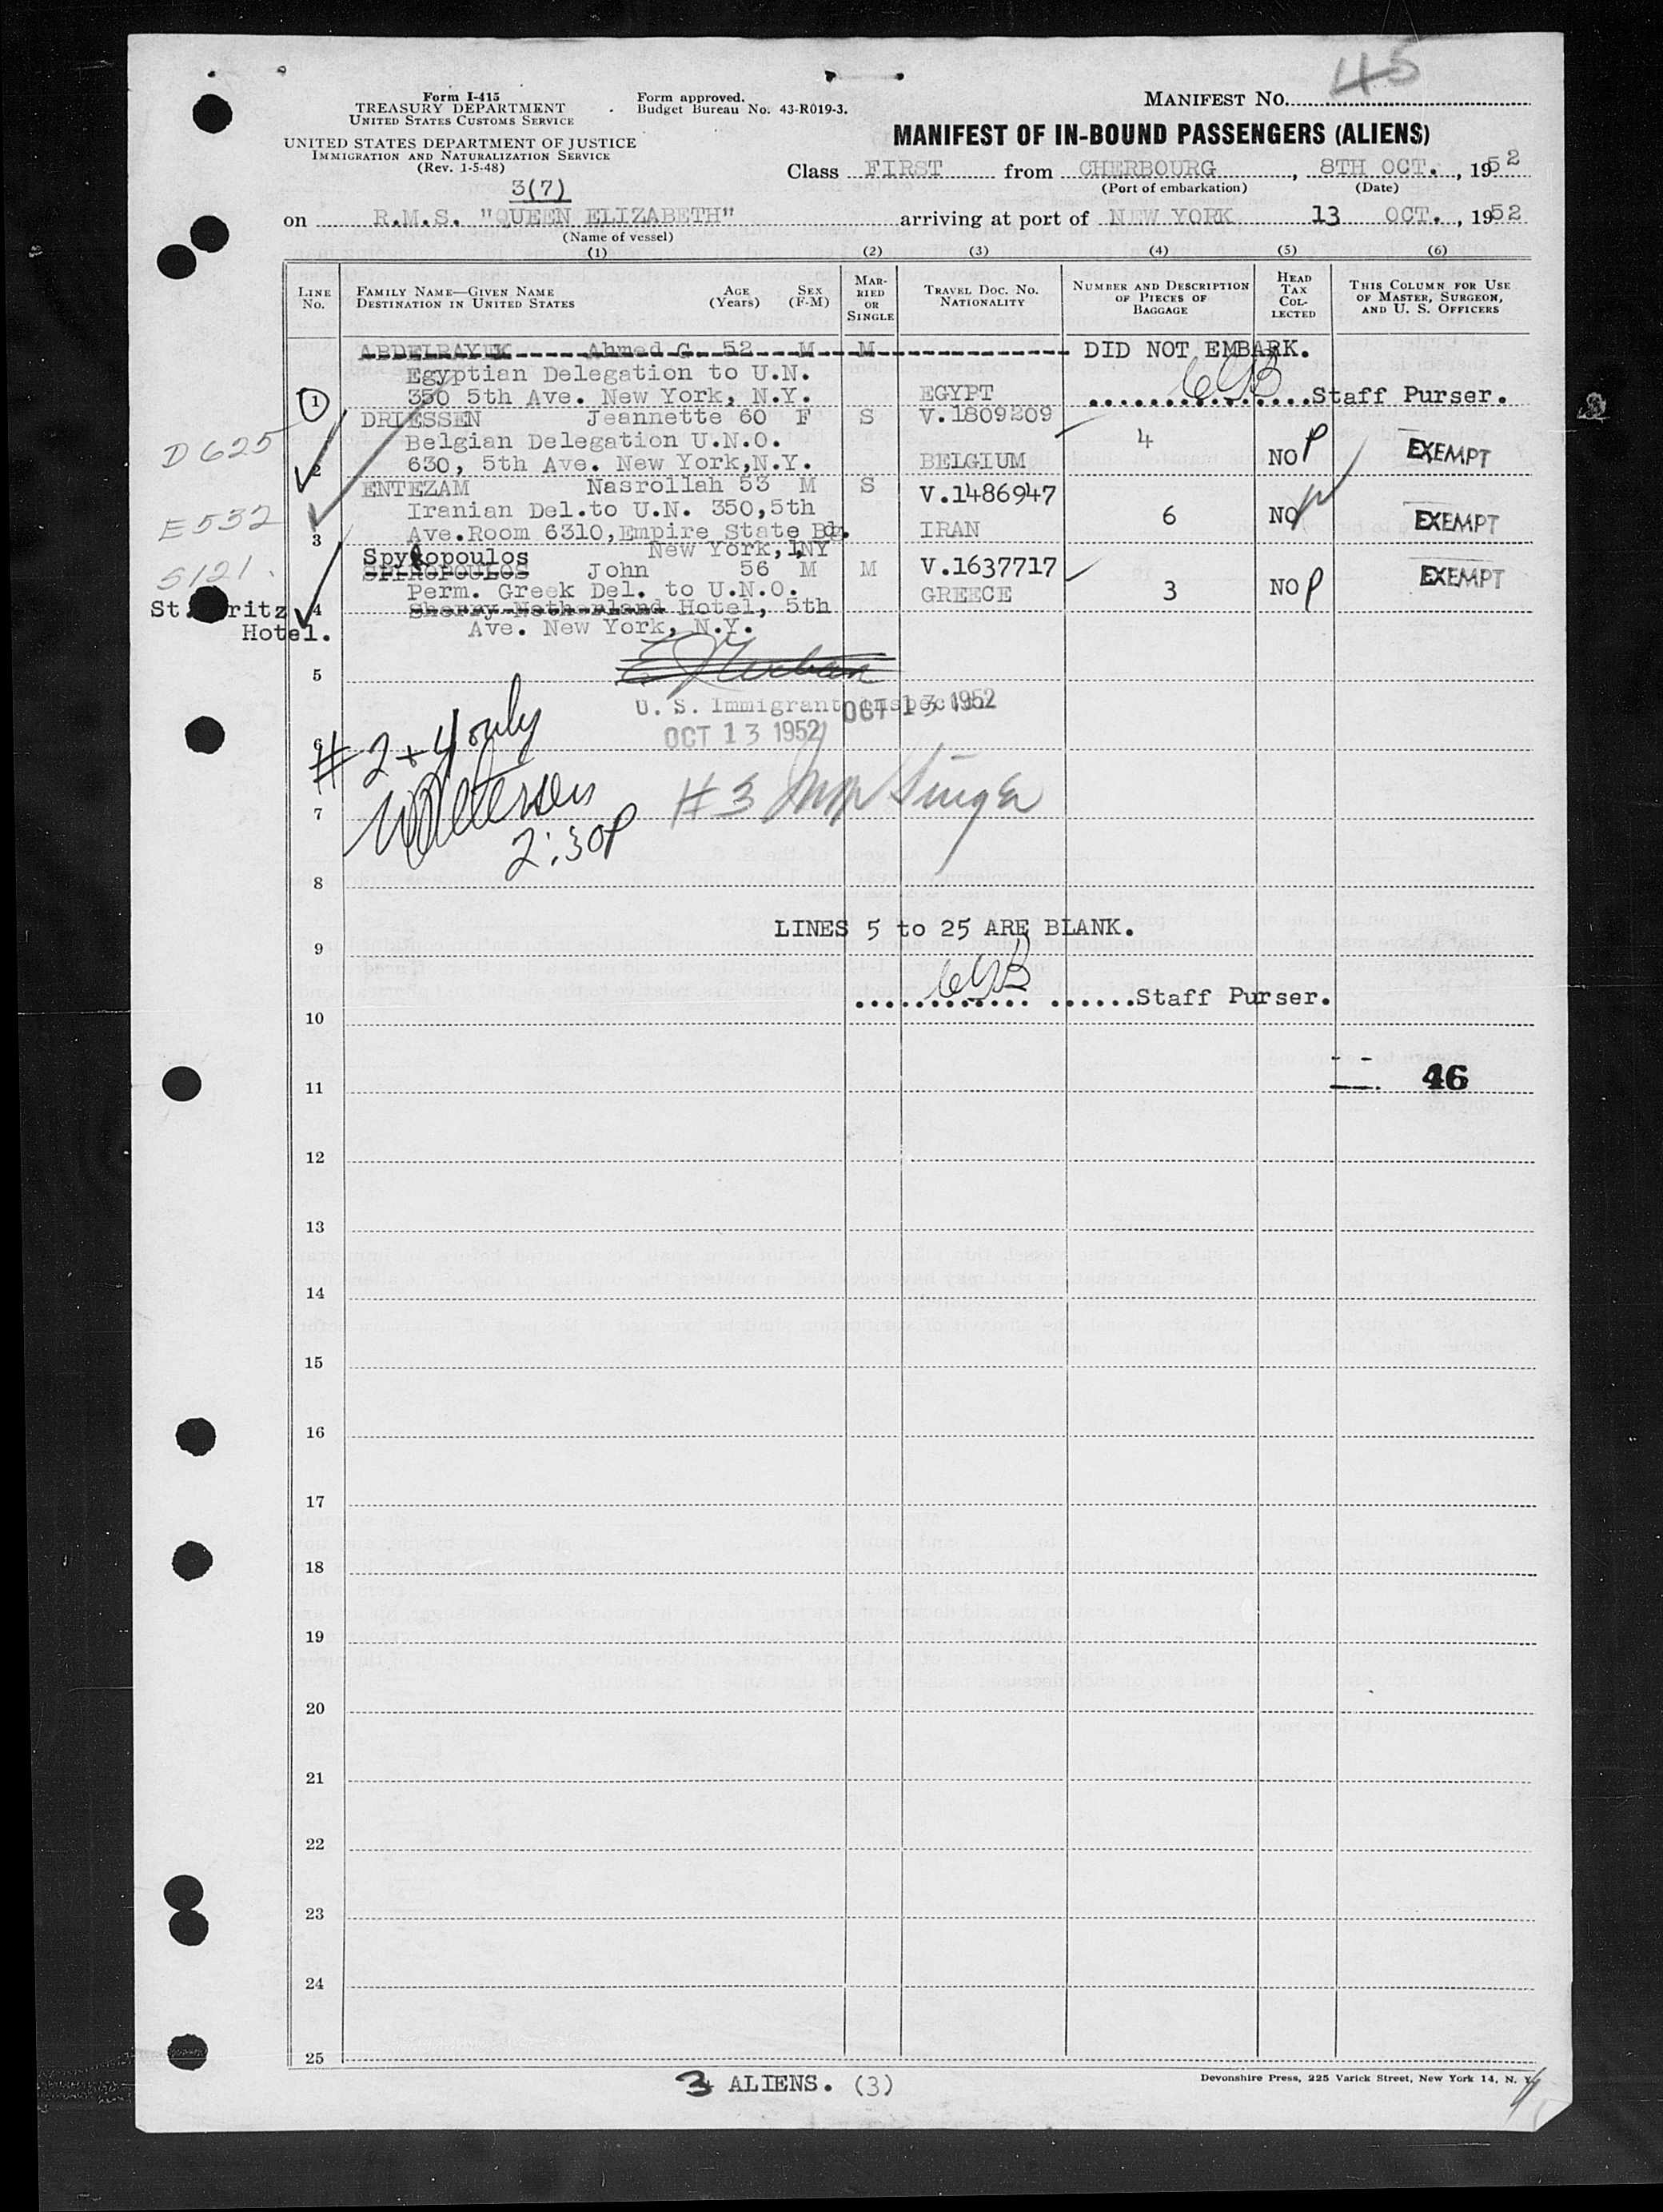 45
Form I-415
TREASURY DEPARTMENT
UNITED STATES CUSTOMS SERVICE
Form approved.
Budget Bureau No. 43-R019-3.
MANIFEST NO.
UNITED STATES DEPARTMENT OF JUSTICE
IMMIGRATION AND NATURALIZATION SERVICE
(Rev. 1-5-48)
MANIFEST OF IN-BOUND PASSENGERS (ALIENS)
Class FIRST from CHERBOURG, 8TH OCT., 1952
(Port of embarkation) (Date)
3(7)
on R.M.S. "QUEEN ELIZABETH" arriving at port of NEW YORK 13 OCT., 1952
(Name of vessel)
(1) (2) (3) (4) (5) (6)
LINE NO. FAMILY NAME—GIVEN NAME DESTINATION IN UNITED STATES AGE (Years) SEX (F-M) MARRIED OR SINGLE TRAVEL DOC. NO. NATIONALITY NUMBER AND DESCRIPTION OF PIECES OF BAGGAGE HEAD TAX COLLECTED THIS COLUMN FOR USE OF MASTER, SURGEON, AND U. S. OFFICERS
Ahmed G 52 M M DID NOT EMBARK.
Egyptian Delegation to U.N.
1 350 5th Ave. New York, N.Y. EGYPT Staff Purser.
DRIESSEN Jeannette 60 F S V.1809209
D625 Belgian Delegation U.N.O. 4
2 630, 5th Ave. New York,N.Y. BELGIUM NO P EXEMPT
ENTEZAM Nasrollah 53 M S V.1486947
E532 Iranian Del.to U.N. 350,5th 6 NO EXEMPT
3 Ave.Room 6310,Empire State Bdg. IRAN
Spyropoulos New York,1NY
S121. SPIROPOULOS John 56 M M V.1637717 EXEMPT
Perm. Greek Del. to U.N.O. GREECE 3 NO P
St. Moritz 4 Sherry-Netherland Hotel, 5th
Hotel. Ave. New York, N.Y.
5
U. S. Immigrant Inspector
OCT 13 1952
OCT 13 1952
#2+4 only
6
#3 Singer
7
2:30P
8
LINES 5 to 25 ARE BLANK.
9
Staff Purser.
10
46
11
12
13
14
15
16
17
18
19
20
21
22
23
24
25
3 ALIENS. (3)
Devonshire Press, 225 Varick Street, New York 14, N. Y.